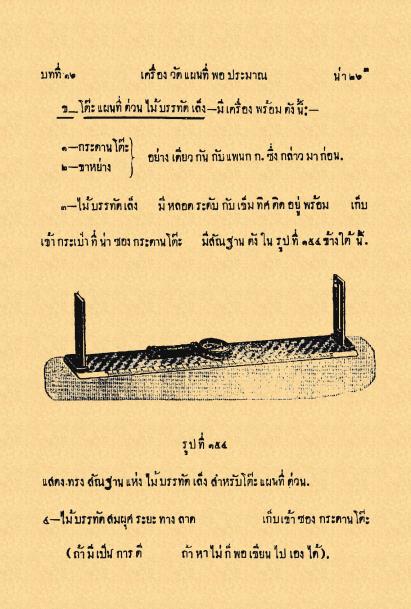 บทที่ ๑๖ เครื่อง วัด แผนที่ พอ ประมาณ น่า
ข_ โต๊ะ แผนที่ ด่วน ไม้ บรรทัด เล็ง—มี เครื่อง พร้อม ดัง นี้:—
๑—กระดาน โต๊ะ
๒—ขาหย่าง
อย่าง เดียว กัน กับ แพนก ก. ซึ่ง กล่าว มา ก่อน.
๓—ไม้ บรรทัด เล็ง มี หลอด ระดับ กับ เข็ม ทิศ ติด อยู่ พร้อม เก็บ
เข้า กระเป๋า ที่ น่า ซอง กระดาน โต๊ะ มี สัณฐาน ดัง ใน รูป ที่ ๑๕๔ ข้าง ใต้ นี้.
รูป ที่ ๑๕๔
แสดง.ทรง สัณฐาน แห่ง ไม้ บรรทัด เล็ง สำหรับ โต๊ะ แผนที่ ด่วน.
๔—ไม้ บรรทัด สมผุศ ระยะ ทาง ลาด เก็บ เข้า ซอง กระดาน โต๊ะ
(ถ้า มี เป็น การ ดี ถ้า หา ไม่ ก็ พอ เขียน ไป เอง ได้).